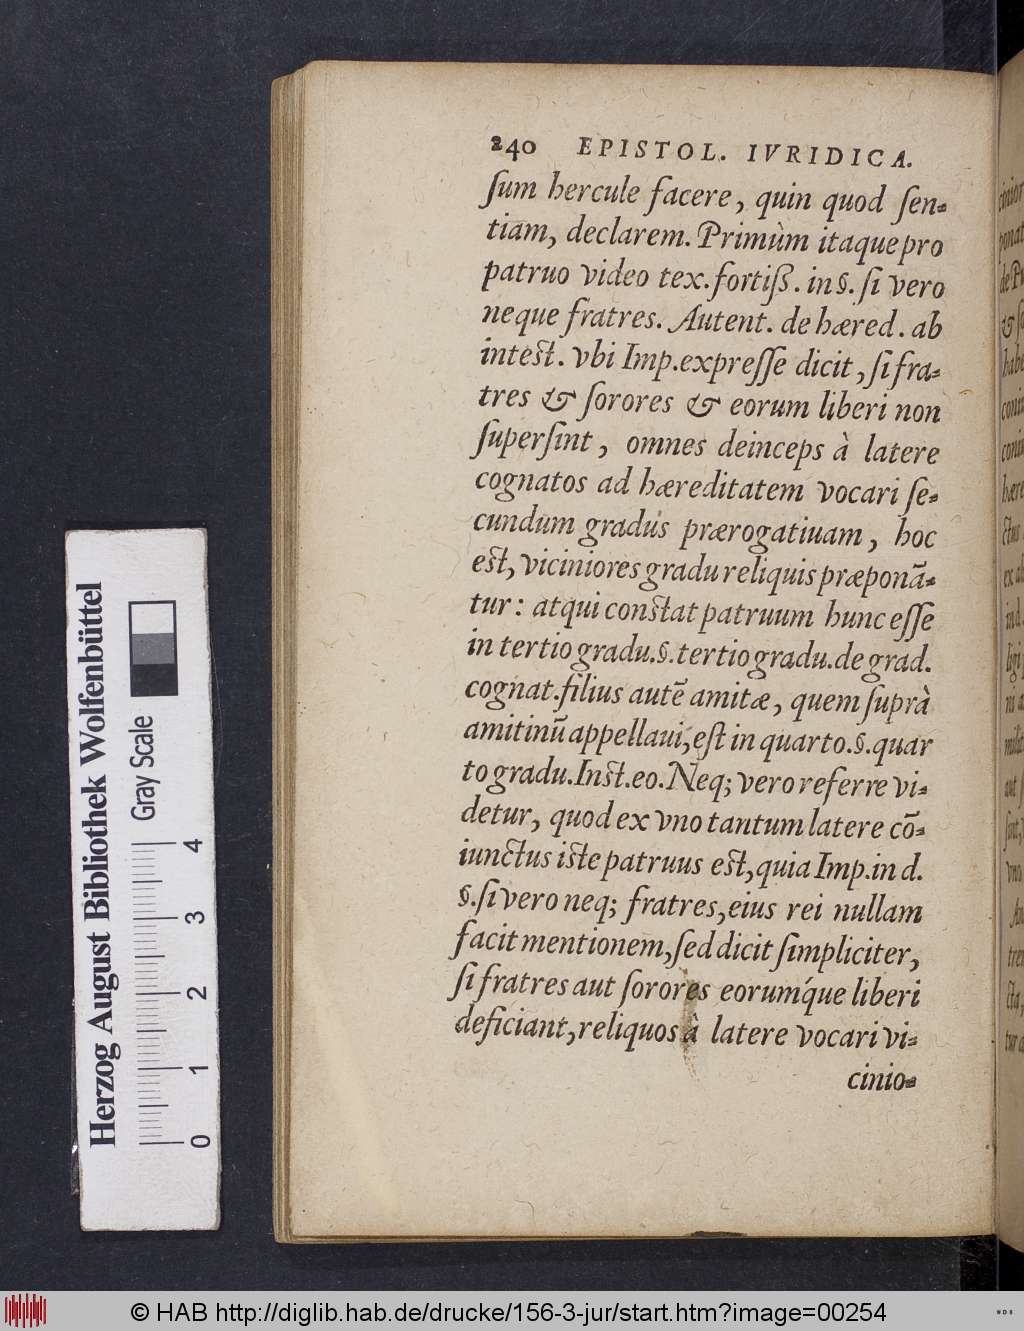 240 EPISTOL. IVRIDICA.
ſum hercule facere, quin quod ſen-
tiam, declarem. Primùm itaque pro
patruo video tex. fortiß. in §. ſi vero
neque fratres. Autent. de hæred. ab
inteſt. vbi Imp. expreſſe dicit, ſi fra-
tres & ſorores & eorum liberi non
ſuperſint, omnes deinceps à latere
cognatos ad hæreditatem vocari ſe-
cundum gradus prærogatiuam, hoc
eſt, viciniores gradu reliquis præponā-
tur: atqui conſtat patruum hunc eſſe
in tertio gradu. §. tertio gradu. de grad.
cognat. filius autē amitæ, quem ſuprà
amitinū appellaui, eſt in quarto. §. quar
to gradu. Inſt. eo. Neq; vero referre vi-
detur, quod ex vno tantum latere cō-
iunctus iſte patruus eſt, quia Imp. in d.
§. ſi vero neq; fratres, eius rei nullam
facit mentionem, ſed dicit ſimpliciter,
ſi fratres aut ſorores eorumq́ue liberi
deficiant, reliquos à latere vocari vi-
cinio-
Herzog August Bibliothek Wolfenbüttel
Gray Scale
0 1 2 3 4
© HAB http://diglib.hab.de/drucke/156-3-jur/start.htm?image=00254